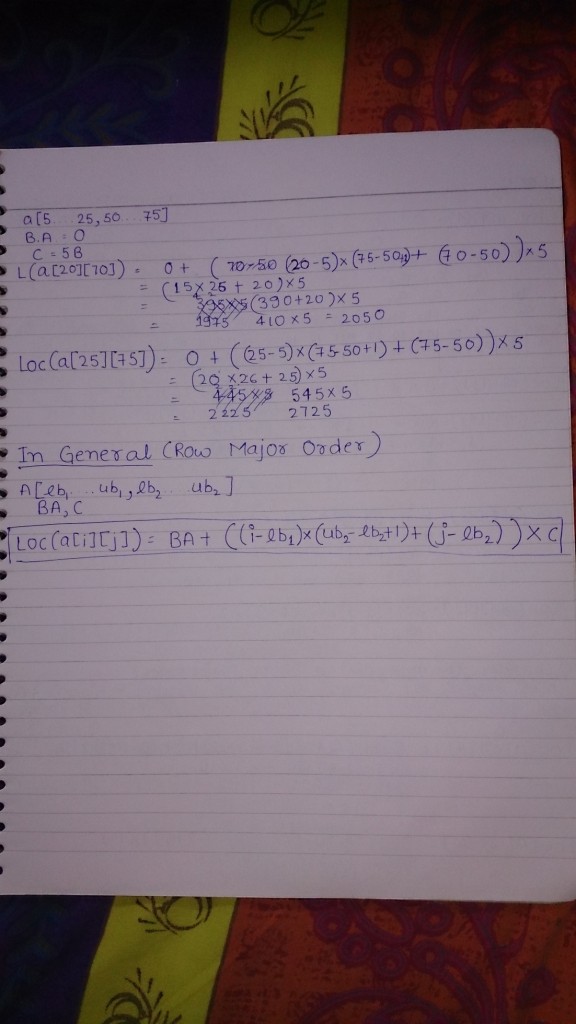 a[5....25, 50...75]
B.A = 0
C = 5B
L(a[20][70]) = 0 + ( 70-50 (20-5)×(75-50+1)+ (70-50))×5
= (15×26 + 20)×5
= 395×5 (390+20)×5
= 1975 410×5 = 2050
Loc(a[25][75]) = 0 + ((25-5)×(75-50+1)+(75-50))×5
= (20×26+25)×5
= 445×5 545×5
= 2225 2725
In General (Row Major Order)
A[lb₁....ub₁, lb₂ ub₂]
BA, C
Loc(a[i][j]) = BA + ((i-lb₁)×(ub₂-lb₂+1)+(j-lb₂))×C